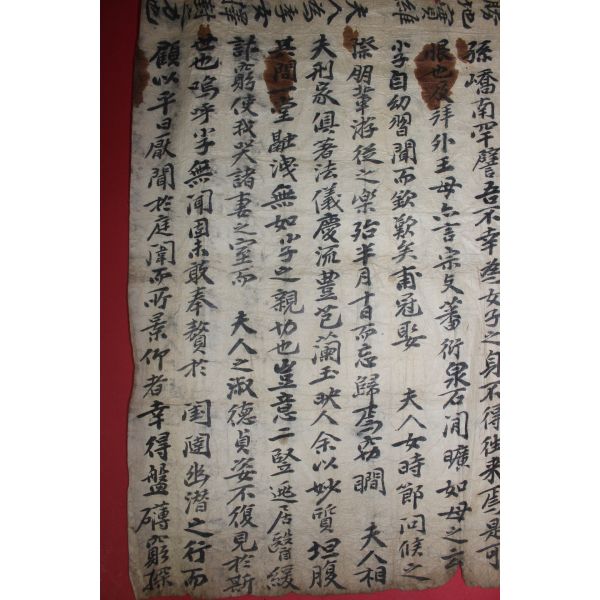 孫嶠南罕譬吾不幸為女子之身不得往来焉是可
恨也及拜外王母亦言宗支蕃衍泉石閒曠如母之云
小子自幼習聞而欽歎矣甫冠娶 夫人女時節问候之
際朋輩游從之樂殆半月十日而忘歸焉窃瞷 夫人相
夫刑家俱著法儀慶流豊芑蘭玉映人余以妙質坦腹
其間一堂融洩無如小子之親切也豈意二竪遞居醫緩
詐窮使我哭諸妻之室而 夫人之淑德貞姿不復見於斯
世也嗚呼小子無聞固未敢奉贊於 閨閫幽潜之行而
顧以平日厭聞於庭闈而所景仰者幸得盤礴窮探